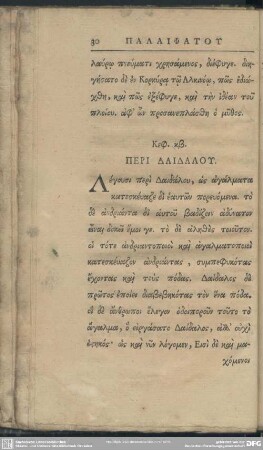 30 ΠΑΛΑΙΦΑΤΟΥ
λαύρῳ πνεύματι χρησάμενος, διέφυγε. διη-
γήσατο δὲ ἐν Κορκύρᾳ τῷ Ἀλκινόῳ, πῶς ἐδιώ-
χθη, καὶ πῶς ἐξέφυγε, καὶ τὴν ἰδέαν τοῦ
πλοίου. ἀφ' ὧν προσανεπλάσθη ὁ μῦθος.
Κεφ. κβ.
ΠΕΡΙ ΔΑΙΔΑΛΟΥ.
Λέγουσι περὶ Δαιδάλου, ὡς ἀγάλματα
κατεσκεύαζε δι' ἑαυτῶν πορευόμενα. τὸ
δὲ ἀνδριάντα δι' αὑτοῦ βαδίζειν ἀδύνατον
εἶναι δοκεῖ ἔμοι γε. τὸ δὲ ἀληθὲς τοιοῦτον.
οἱ τότε ἀνδριαντοποιοὶ καὶ ἀγαλματοποιοὶ
κατεσκεύαζον ἀνδριάντας, συμπεφυκότας
ἔχοντας καὶ τοὺς πόδας. Δαίδαλος δὲ
πρῶτος ἐποίει διαβεβηκότας τὸν ἕνα πόδα.
οἱ δὲ ἄνθρωποι ἔλεγον ὁδοιποροῦν τοῦτο τὸ
ἄγαλμα, ὃ εἰργάσατο Δαίδαλος, ἀλλ' οὐχὶ
ἑστηκός· ὡς καὶ νῦν λέγομεν, Εἰσὶ δὲ καὶ μα-
χόμενοι